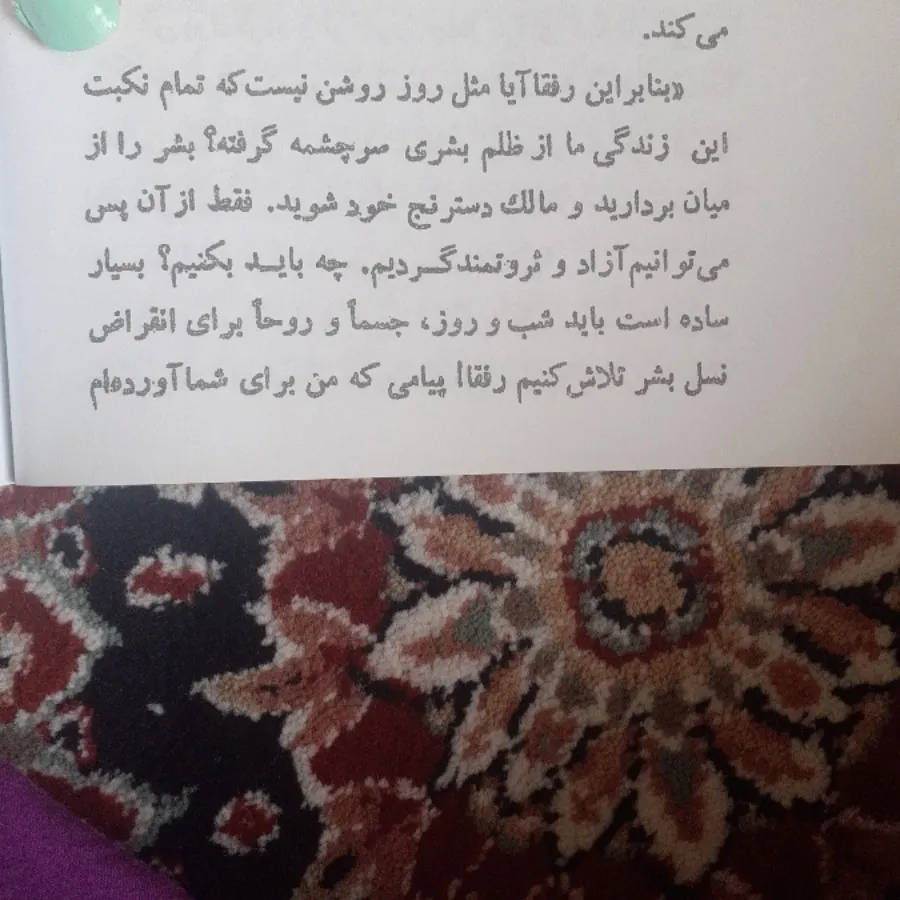 می‌کند.
«بنابراین رفقا آیا مثل روز روشن نیست که تمام نکبت
این زندگی ما از ظلم بشری سرچشمه گرفته؟ بشر را از
میان بردارید و مالك دسترنج خود شوید. فقط از آن پس
می‌توانیم آزاد و ثروتمند گـــردیم. چه بایـــد بکنیم؟ بسیار
ساده است باید شب و روز، جسماً و روحاً برای انقراض
نسل بشر تلاش کنیم رفقا! پیامی که من برای شما آورده‌ام